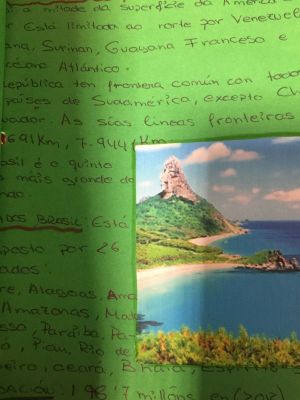 a mitade da superficie da América
Está limitado ao norte por Venezuel
ana, Surinan, Guayana Francesa e
océano Atlántico.
República ten fronteira común con todo
países de Sudamérica, excepto Ch
uador. As súas lineas fronteiras
691 Km, 7.944 Km
asil é o quinto
mais grande do
ndo.
DOS BRASIL: Está
posto por 26
ados:
re, Alagoas, Ama
Amazonas, Mado
sso, Paraíba, Pa-
á, Piaui, Rio de
eiro, Ceará, Bhaia, Espirito S
ACIÓN: 196'7 millóns en (2012)